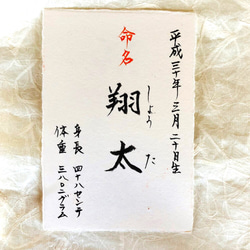 平成三十年三月二十日生
命名
翔太
しょうた
身長 四十八センチ
体重 三八〇〇グラム